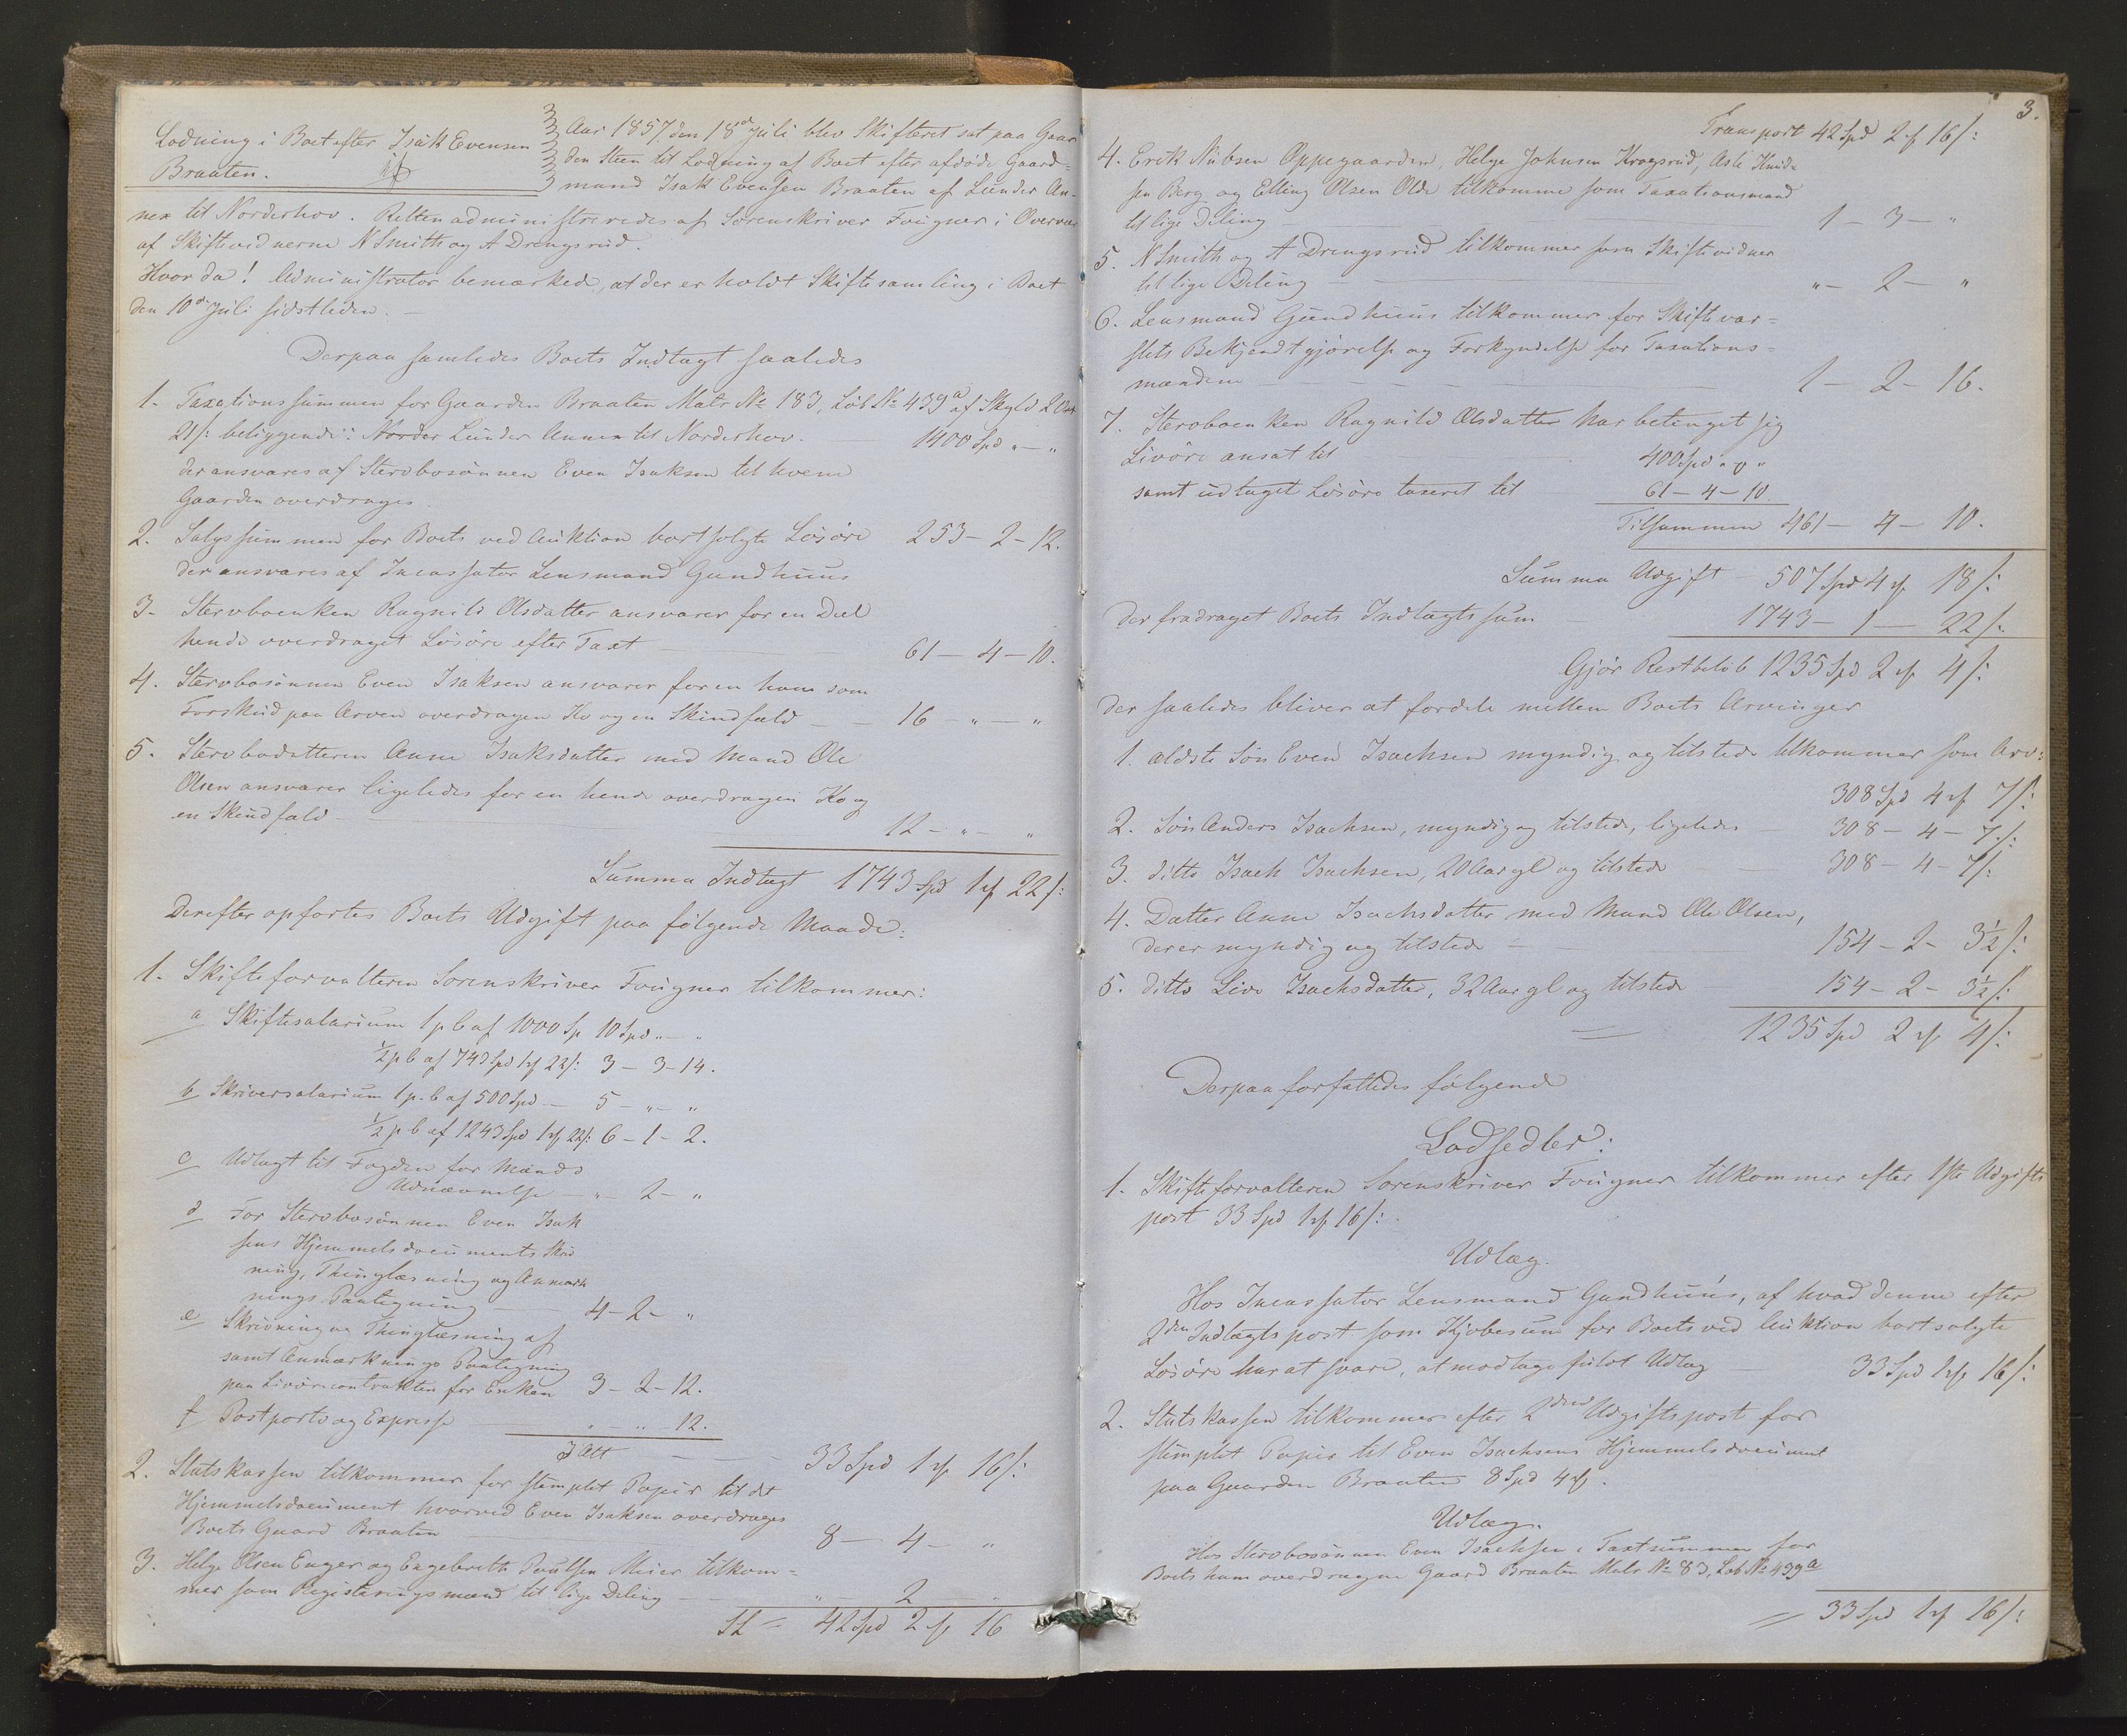 Lodning i Boet efter Isak Evensen
Braaten.
Aar 1857 den 18de Juli blev Skifteret sat paa Gaar
den Steen til Lodning af Boet efter afdøde Gaard-
mand Isak Evensen Braaten af Lunder An-
nex til Norderhov. Retten administreredes af Sorenskriver Fougner i Overvær
af Skiftevidnerne N Smith og A Drengsrud.
Hvor da! Administrator bemærkede, at der er holdt Skiftesamling i Boet
den 10de Juli sidstleden. —
Derpaa samledes Boets Indtægt saaledes
1. Taxationssummen for Gaarden Braaten Matr No 183, Løb No 439a af Skyld 2 Ort
21 /: beliggende i Norder Lunder Annex til Norderhov. 1400 Spd " — "
der ansvares af Stervbosønnen Even Isaksen til hvem
Gaarden overdrages
2. Salgssummen for Boets ved Auktion bortsolgte Løsøre 253 – 2 – 12.
der ansvares af Incassator Lensmand Gundhuus
3. Stervboenken Ragnild Olsdatter ansvarer for en Deel
hende overdraget Løsøre efter Taxt — 61 — 4 — 10.
4. Stervbosønnen Even Isaksen ansvarer for en ham som
Forskud paa Arven overdragen Ko og en Skindfæld — — 16 — " — "
5. Stervbodatteren Anne Isaksdatter med Mand Ole
Olsen ansvarer ligeledes for en hende overdragen Ko og
en Skindfæld — 12 — " — "
Summa Indtægt 1743 Spd 1 ƒ 22 /:
Derefter opførtes Boets Udgift paa følgende Maade:
1. Skifteforvalteren Sorenskriver Fougner tilkommer:
a Skiftesalarium 1 p C af 1000 Sp 10 Spd " — "
½ p C af 743 Spd 1 ƒ 22 /: 3 — 3 – 14.
b Skriversalarium 1 p. C af 500 Spd — 5 — " — "
½ p C af 1243 Spd 1 ƒ 22 /: 6 – 1 – 2.
c Udlagt til Fogden for Mænds
Udnævnelse — " — 2 — "
d For Stervbosønnen Even Isak
sens Hjemmelsdocuments Skriv
ning, Thinglæsning og Anmærk
nings Paategning — 4 – 2 – "
e Skrivning og Thinglæsning af
samt Anmærknings Paategning
paa Livørecontrakten for Enken 3 – 2 – 12.
f Postporto og Expresse " — " 12.
I Alt — 33 Spd 1 ƒ 16 /:
2. Statskassen tilkommer for stemplet Papir til det
Hjemmelsdocument hvorved Even Isaksen overdrages
Boets Gaard Braaten 8 — 4 — "
3. Helge Olsen Enger og Engebreth Paulsen Meier tilkom-
mer som Registeringsmænd til lige Deling — " — 2 — "
St = 42 Spd 2 ƒ 16
3.
Transport 42 Spd 2 ƒ 16 /:
4. Erik Nubsen Oppegaarden, Helge Johnsen Kragsrud, Asle Knud-
sen Berg og Elling Olsen Olde tilkomme som Taxationsmænd
til lige Deling 1 — 3 — "
5. N Smith og A Drengsrud tilkommer som Skiftevidner
til lige Deling — " — 2 — "
6. Lensmand Gundhuus tilkommer for Skiftevar-
slets Bekjendtgjørelse og Forkyndelse for Taxations-
mændene — 1 — 2 — 16.
7. Stervboenken Ragnild Olsdatter har betinget sig
Livøre ansat til 400 Spd " o "
samt udtaget Løsøre taxeret til 61 – 4 – 10.
Tilsammen 461 — 4 — 10.
Summa Udgift — 507 Spd 4 ƒ 18 /:
der fradraget Boets Indtægtssum 1743 — 1 — 22 /:
Gjør Restbeløb 1235 Spd 2 ƒ 4 /:
der saaledes bliver at fordele mellem Boets Arvinger
1. ældste Søn Even Isachsen myndig og tilstede tilkommer som Arv:
308 Spd 4 ƒ 7 /:
2. Søn Anders Isachsen, myndig og tilstede, ligeledes 308 — 4 — 7 /:
3. ditto Isach Isachsen, 20 Aar gl og tilstede — 308 — 4 — 7 /:
4. Datter Anne Isachsdatter med Mand Ole Olsen,
der er myndig og tilstede — 154 — 2 — 3½ /:
5. ditto Live Isachsdatter, 32 Aar gl og tilstede 154 — 2 — 3½ /:
= 1235 Spd 2 ƒ 4 /:
Derpaa forfattedes følgende
Lodsedler:
1. Skifteforvalteren Sorenskriver Fougner tilkommer efter 1ste Udgifts
post 33 Spd 1 ƒ 16 /:
Udlæg.
Hos Incassator Lensmand Gundhuus, af hvad denne efter
2den Indtægtspost som Kjøbesum for Boets ved Auktion bortsolgte
Løsøre har at svare, at modtage fuldt Udlæg — 33 Spd 1 ƒ 16 /:
2. Statskassen tilkommer efter 2den Udgiftspost for
stemplet Papir til Even Isachsens Hjemmelsdocument
paa Gaarden Braaten 8 Spd 4 ƒ.
Udlæg.
Hos Stervbosønnen Even Isachsen i Taxtsummen for
Boets ham overdragne Gaard Braaten Matr No 83, Løb No 439a
= 33 Spd 1 ƒ 16 /: